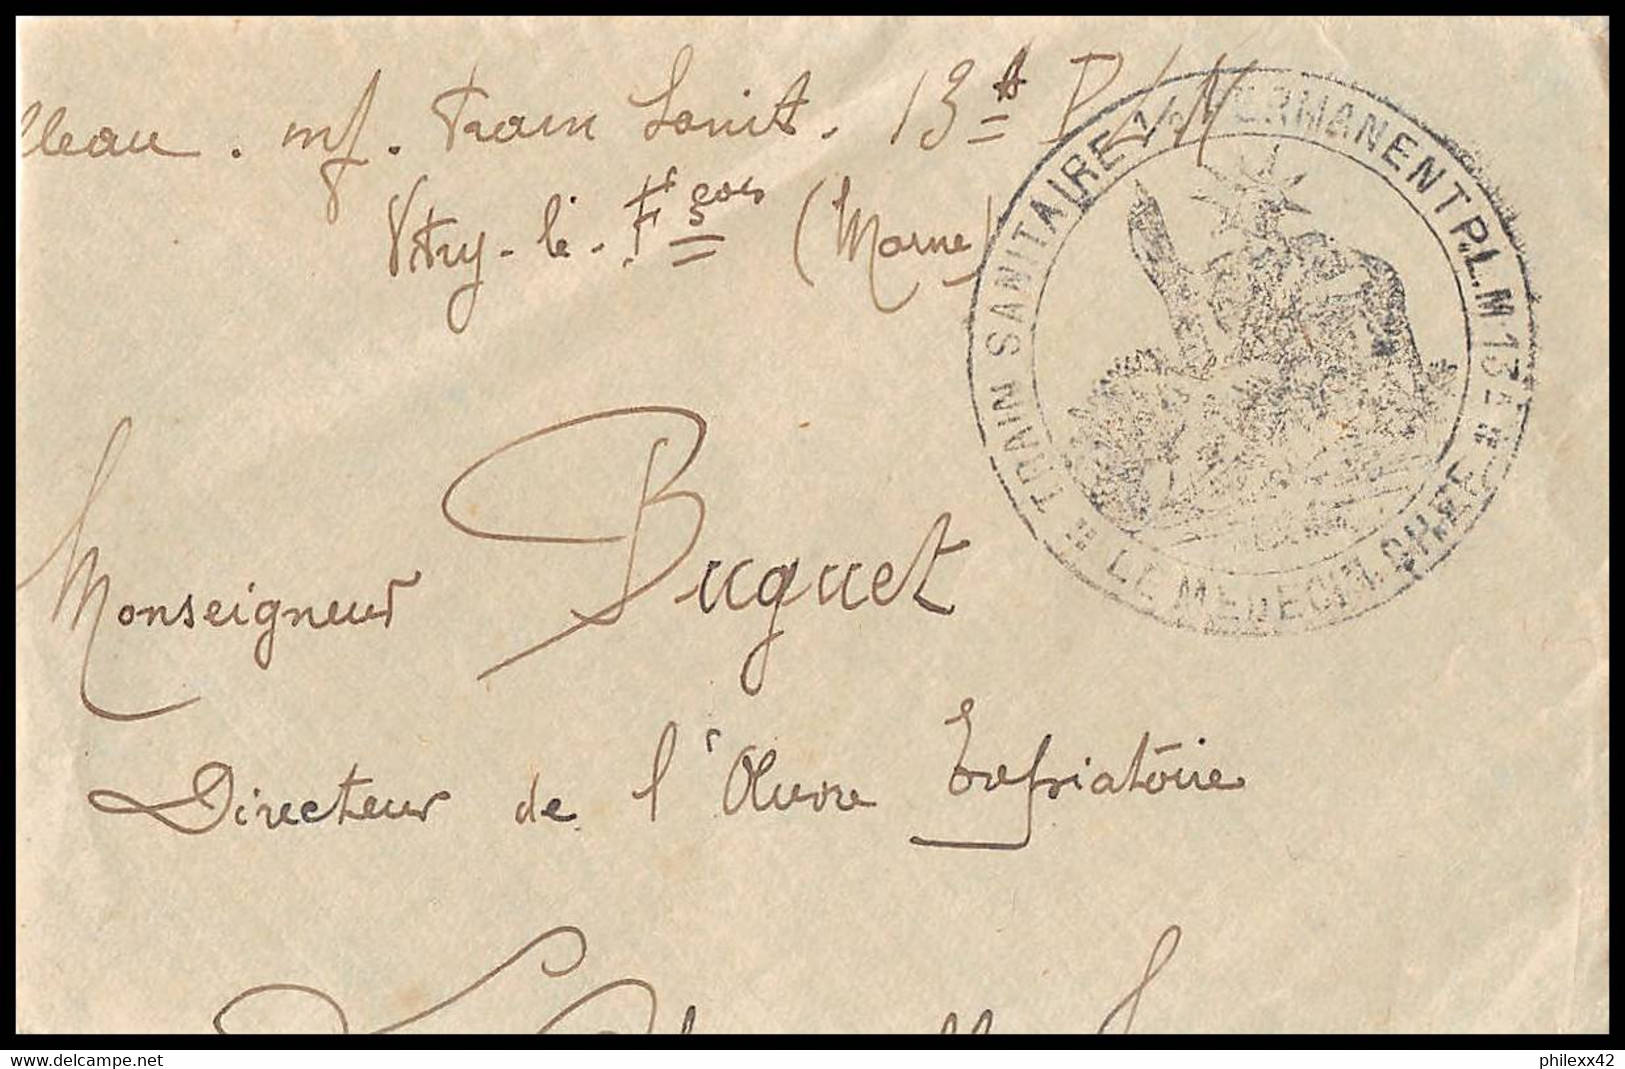 lleau. inf. Train Sanit. 13 A P L M
Vitry-le-Fçois (Marne)
TRAIN SANITAIRE 1/2 PERMANENT P.L.M. 13 A
LE MÉDECIN CHEF
Monseigneur Buguet
Directeur de l'Œuvre Expiatoire
philexx42
www.delcampe.net